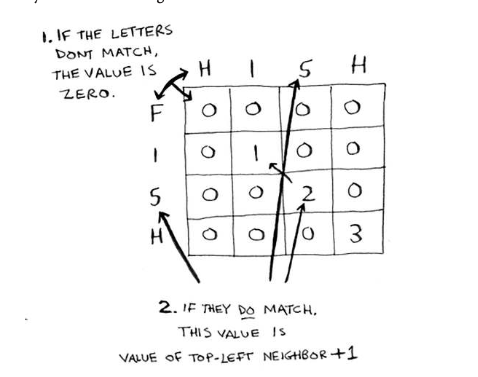 1. IF THE LETTERS
DONT MATCH,
THE VALUE IS
ZERO.
H I S H
F 0 0 0 0
I 0 1 0 0
S 0 0 2 0
H 0 0 0 3
2. IF THEY DO MATCH,
THIS VALUE IS
VALUE OF TOP-LEFT NEIGHBOR+1